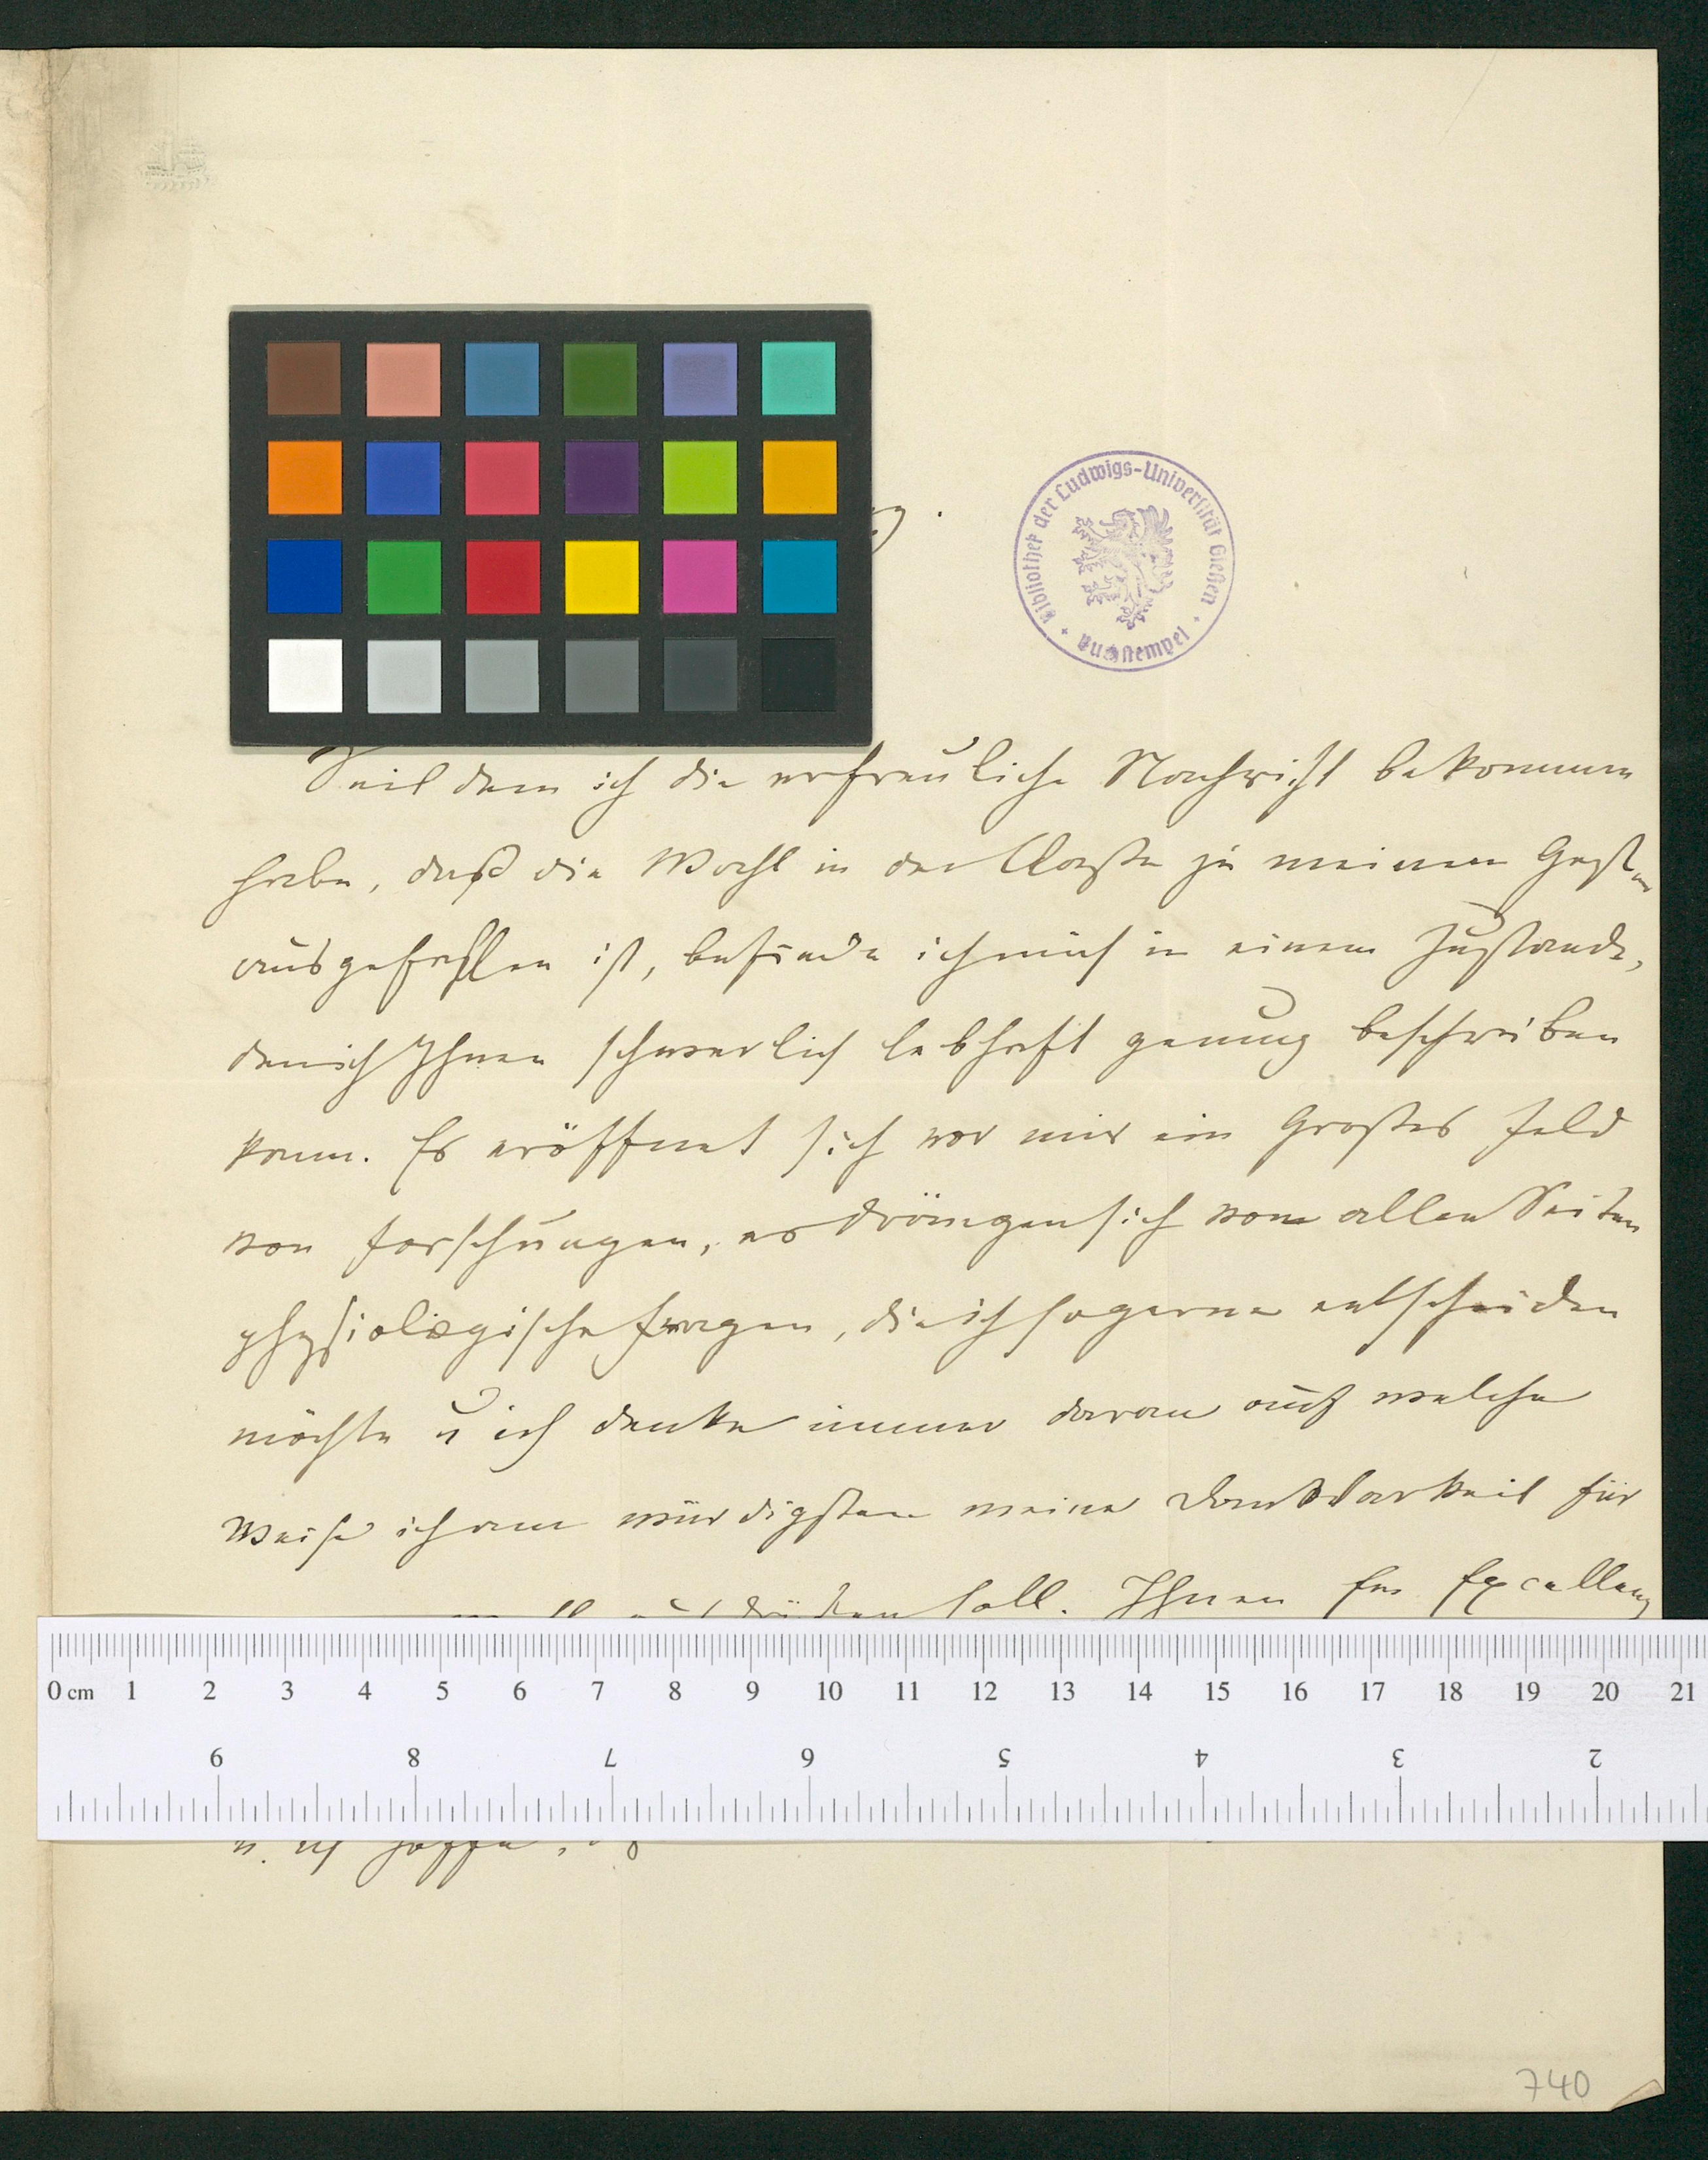 Bibliothek der Ludwigs-Universität Gießen
Buchstempel
Seit dem ich die erfreuliche Nachricht bekommen
habe, daß die Wahl in der Classe zu meinen Gusten
ausgefallen ist, befinde ich mich in einem Zustande,
den ich Ihnen schwerlich lebhaft genung beschreiben
kann. Es eröffnet sich vor mir ein Großes Feld
von Forschungen, es drängen sich von allen Seiten
physiologische Fragen, die ich so gerne entscheiden
möchte u ich denke immer daran auf welche
Weise ich am würdigsten meine Dankbarkeit für
soll. Ihnen Eur Excellenz
0 cm 1 2 3 4 5 6 7 8 9 10 11 12 13 14 15 16 17 18 19 20 21
9 8 7 6 5 4 3 2
u. ich hoffe,
740